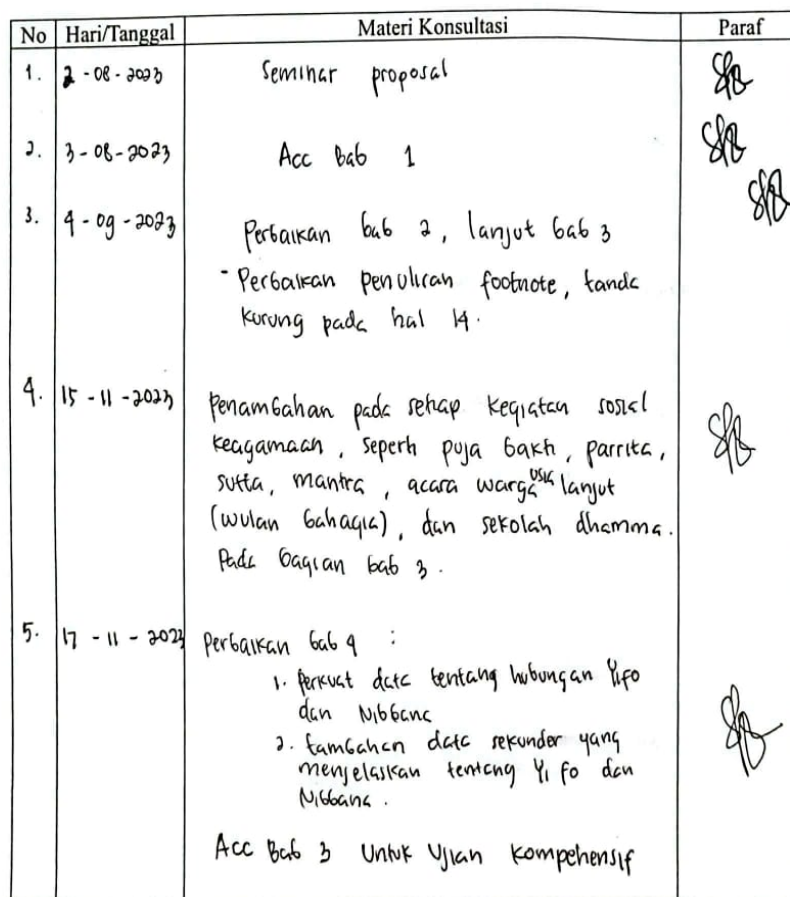 No Hari/Tanggal Materi Konsultasi Paraf
1. 2-08-2023 Seminar proposal
2. 3-08-2023 Acc Bab 1
3. 4-09-2023 Perbaikan bab 2, lanjut bab 3
- Perbaikan penulisan footnote, tanda
kurung pada hal 14.
4. 15-11-2023 Penambahan pada setiap kegiatan sosial
keagamaan, seperti puja bakti, parrita,
sutta, mantra, acara warga usia lanjut
(wulan bahagia), dan sekolah dhamma.
Pada bagian bab 3.
5. 17-11-2023 Perbaikan bab 4 :
1. Perkuat data tentang hubungan Yifo
dan Nibbana
2. tambahan data sekunder yang
menjelaskan tentang Yi fo dan
Nibbana.
Acc Bab 3 Untuk Ujian Kompehensif